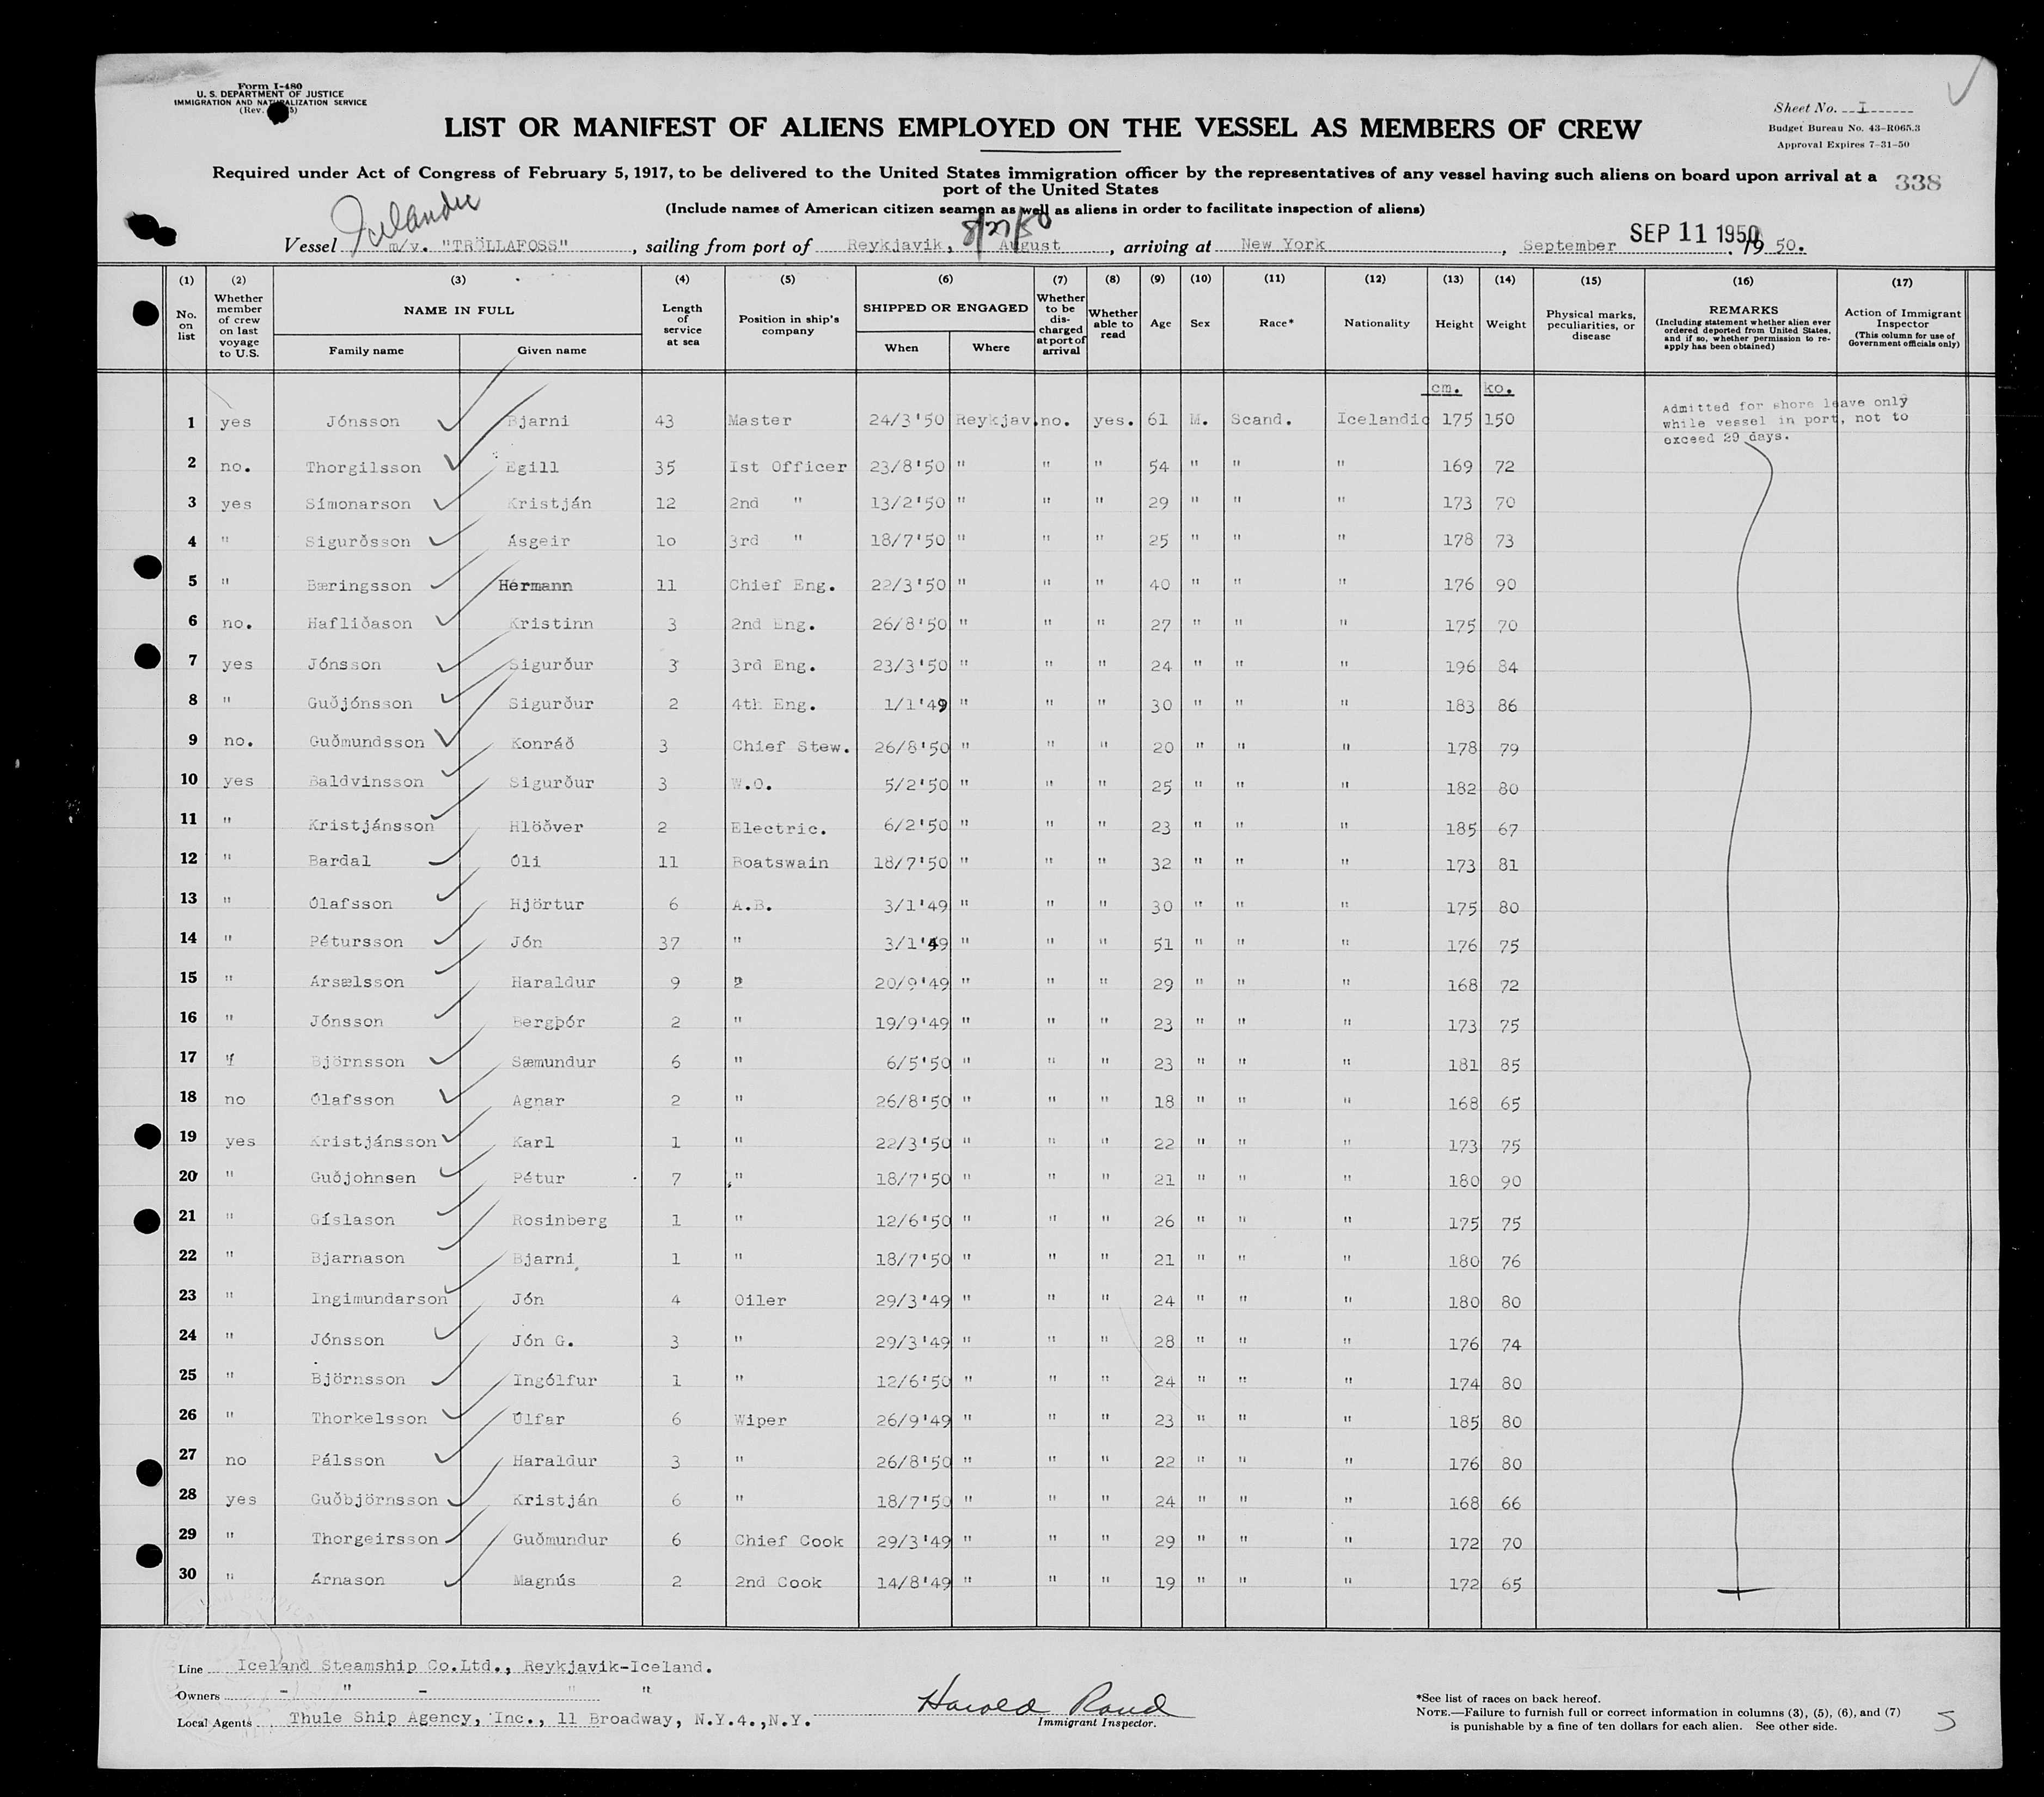 Form I-480
U. S. DEPARTMENT OF JUSTICE
IMMIGRATION AND NATURALIZATION SERVICE
(Rev.
Sheet No. I
Budget Bureau No. 43-R065.3
Approval Expires 7-31-50
LIST OR MANIFEST OF ALIENS EMPLOYED ON THE VESSEL AS MEMBERS OF CREW
Required under Act of Congress of February 5, 1917, to be delivered to the United States immigration officer by the representatives of any vessel having such aliens on board upon arrival at a
port of the United States
338
(Include names of American citizen seamen as well as aliens in order to facilitate inspection of aliens)
Icelandic 8/27/50 SEP 11 1950
Vessel m/v. "TRÖLLAFOSS", sailing from port of Reykjavik, August, arriving at New York, September 1950.
(1) (2) (3) (4) (5) (6) (7) (8) (9) (10) (11) (12) (13) (14) (15) (16) (17)
No. on list
Whether member of crew on last voyage to U.S.
NAME IN FULL
Family name Given name
Length of service at sea
Position in ship's company
SHIPPED OR ENGAGED
When Where
Whether to be discharged at port of arrival
Whether able to read
Age Sex Race* Nationality Height Weight
Physical marks, peculiarities, or disease
REMARKS
(Including statement whether alien ever ordered deported from United States, and if so, whether permission to re-apply has been obtained)
Action of Immigrant Inspector
(This column for use of Government officials only)
cm. ko.
1 yes Jónsson Bjarni 43 Master 24/3'50 Reykjav. no. yes. 61 M. Scand. Icelandic 175 150
Admitted for shore leave only
while vessel in port, not to
exceed 29 days.
2 no. Thorgilsson Egill 35 Ist Officer 23/8'50 " " " 54 " " " 169 72
3 yes Símonarson Kristján 12 2nd " 13/2'50 " " " 29 " " " 173 70
4 " Sigurðsson Ásgeir 1o 3rd " 18/7'50 " " " 25 " " " 178 73
5 " Bæringsson Hermann 11 Chief Eng. 22/3'50 " " " 40 " " " 176 90
6 no. Hafliðason Kristinn 3 2nd Eng. 26/8'50 " " " 27 " " " 175 70
7 yes Jónsson Sigurður 3 3rd Eng. 23/3'50 " " " 24 " " " 196 84
8 " Guðjónsson Sigurður 2 4th Eng. 1/1'49 " " " 30 " " " 183 86
9 no. Guðmundsson Konráð 3 Chief Stew. 26/8'50 " " " 20 " " " 178 79
10 yes Baldvinsson Sigurður 3 W.O. 5/2'50 " " " 25 " " " 182 80
11 " Kristjánsson Hlöðver 2 Electric. 6/2'50 " " " 23 " " " 185 67
12 " Bardal Óli 11 Boatswain 18/7'50 " " " 32 " " " 173 81
13 " Ólafsson Hjörtur 6 A.B. 3/1'49 " " " 30 " " " 175 80
14 " Pétursson Jón 37 " 3/1'49 " " " 51 " " " 176 75
15 " Ársælsson Haraldur 9 2 20/9'49 " " " 29 " " " 168 72
16 " Jónsson Bergþór 2 " 19/9'49 " " " 23 " " " 173 75
17 " Björnsson Sæmundur 6 " 6/5'50 " " " 23 " " " 181 85
18 no Ólafsson Agnar 2 " 26/8'50 " " " 18 " " " 168 65
19 yes Kristjánsson Karl 1 " 22/3'50 " " " 22 " " " 173 75
20 " Guðjohnsen Pétur 7 " 18/7'50 " " " 21 " " " 180 90
21 " Gíslason Rosinberg 1 " 12/6'50 " " " 26 " " " 175 75
22 " Bjarnason Bjarni 1 " 18/7'50 " " " 21 " " " 180 76
23 " Ingimundarson Jón 4 Oiler 29/3'49 " " " 24 " " " 180 80
24 " Jónsson Jón G. 3 " 29/3'49 " " " 28 " " " 176 74
25 " Björnsson Ingólfur 1 " 12/6'50 " " " 24 " " " 174 80
26 " Thorkelsson Úlfar 6 Wiper 26/9'49 " " " 23 " " " 185 80
27 no Pálsson Haraldur 3 " 26/8'50 " " " 22 " " " 176 80
28 yes Guðbjörnsson Kristján 6 " 18/7'50 " " " 24 " " " 168 66
29 " Thorgeirsson Guðmundur 6 Chief Cook 29/3'49 " " " 29 " " " 172 70
30 " Árnason Magnús 2 2nd Cook 14/8'49 " " " 19 " " " 172 65
Line Iceland Steamship Co.Ltd., Reykjavik-Iceland.
Owners - " - " "
Local Agents Thule Ship Agency, Inc., 11 Broadway, N.Y.4.,N.Y.
Harold Rand
Immigrant Inspector.
*See list of races on back hereof.
NOTE.—Failure to furnish full or correct information in columns (3), (5), (6), and (7)
is punishable by a fine of ten dollars for each alien. See other side.
5